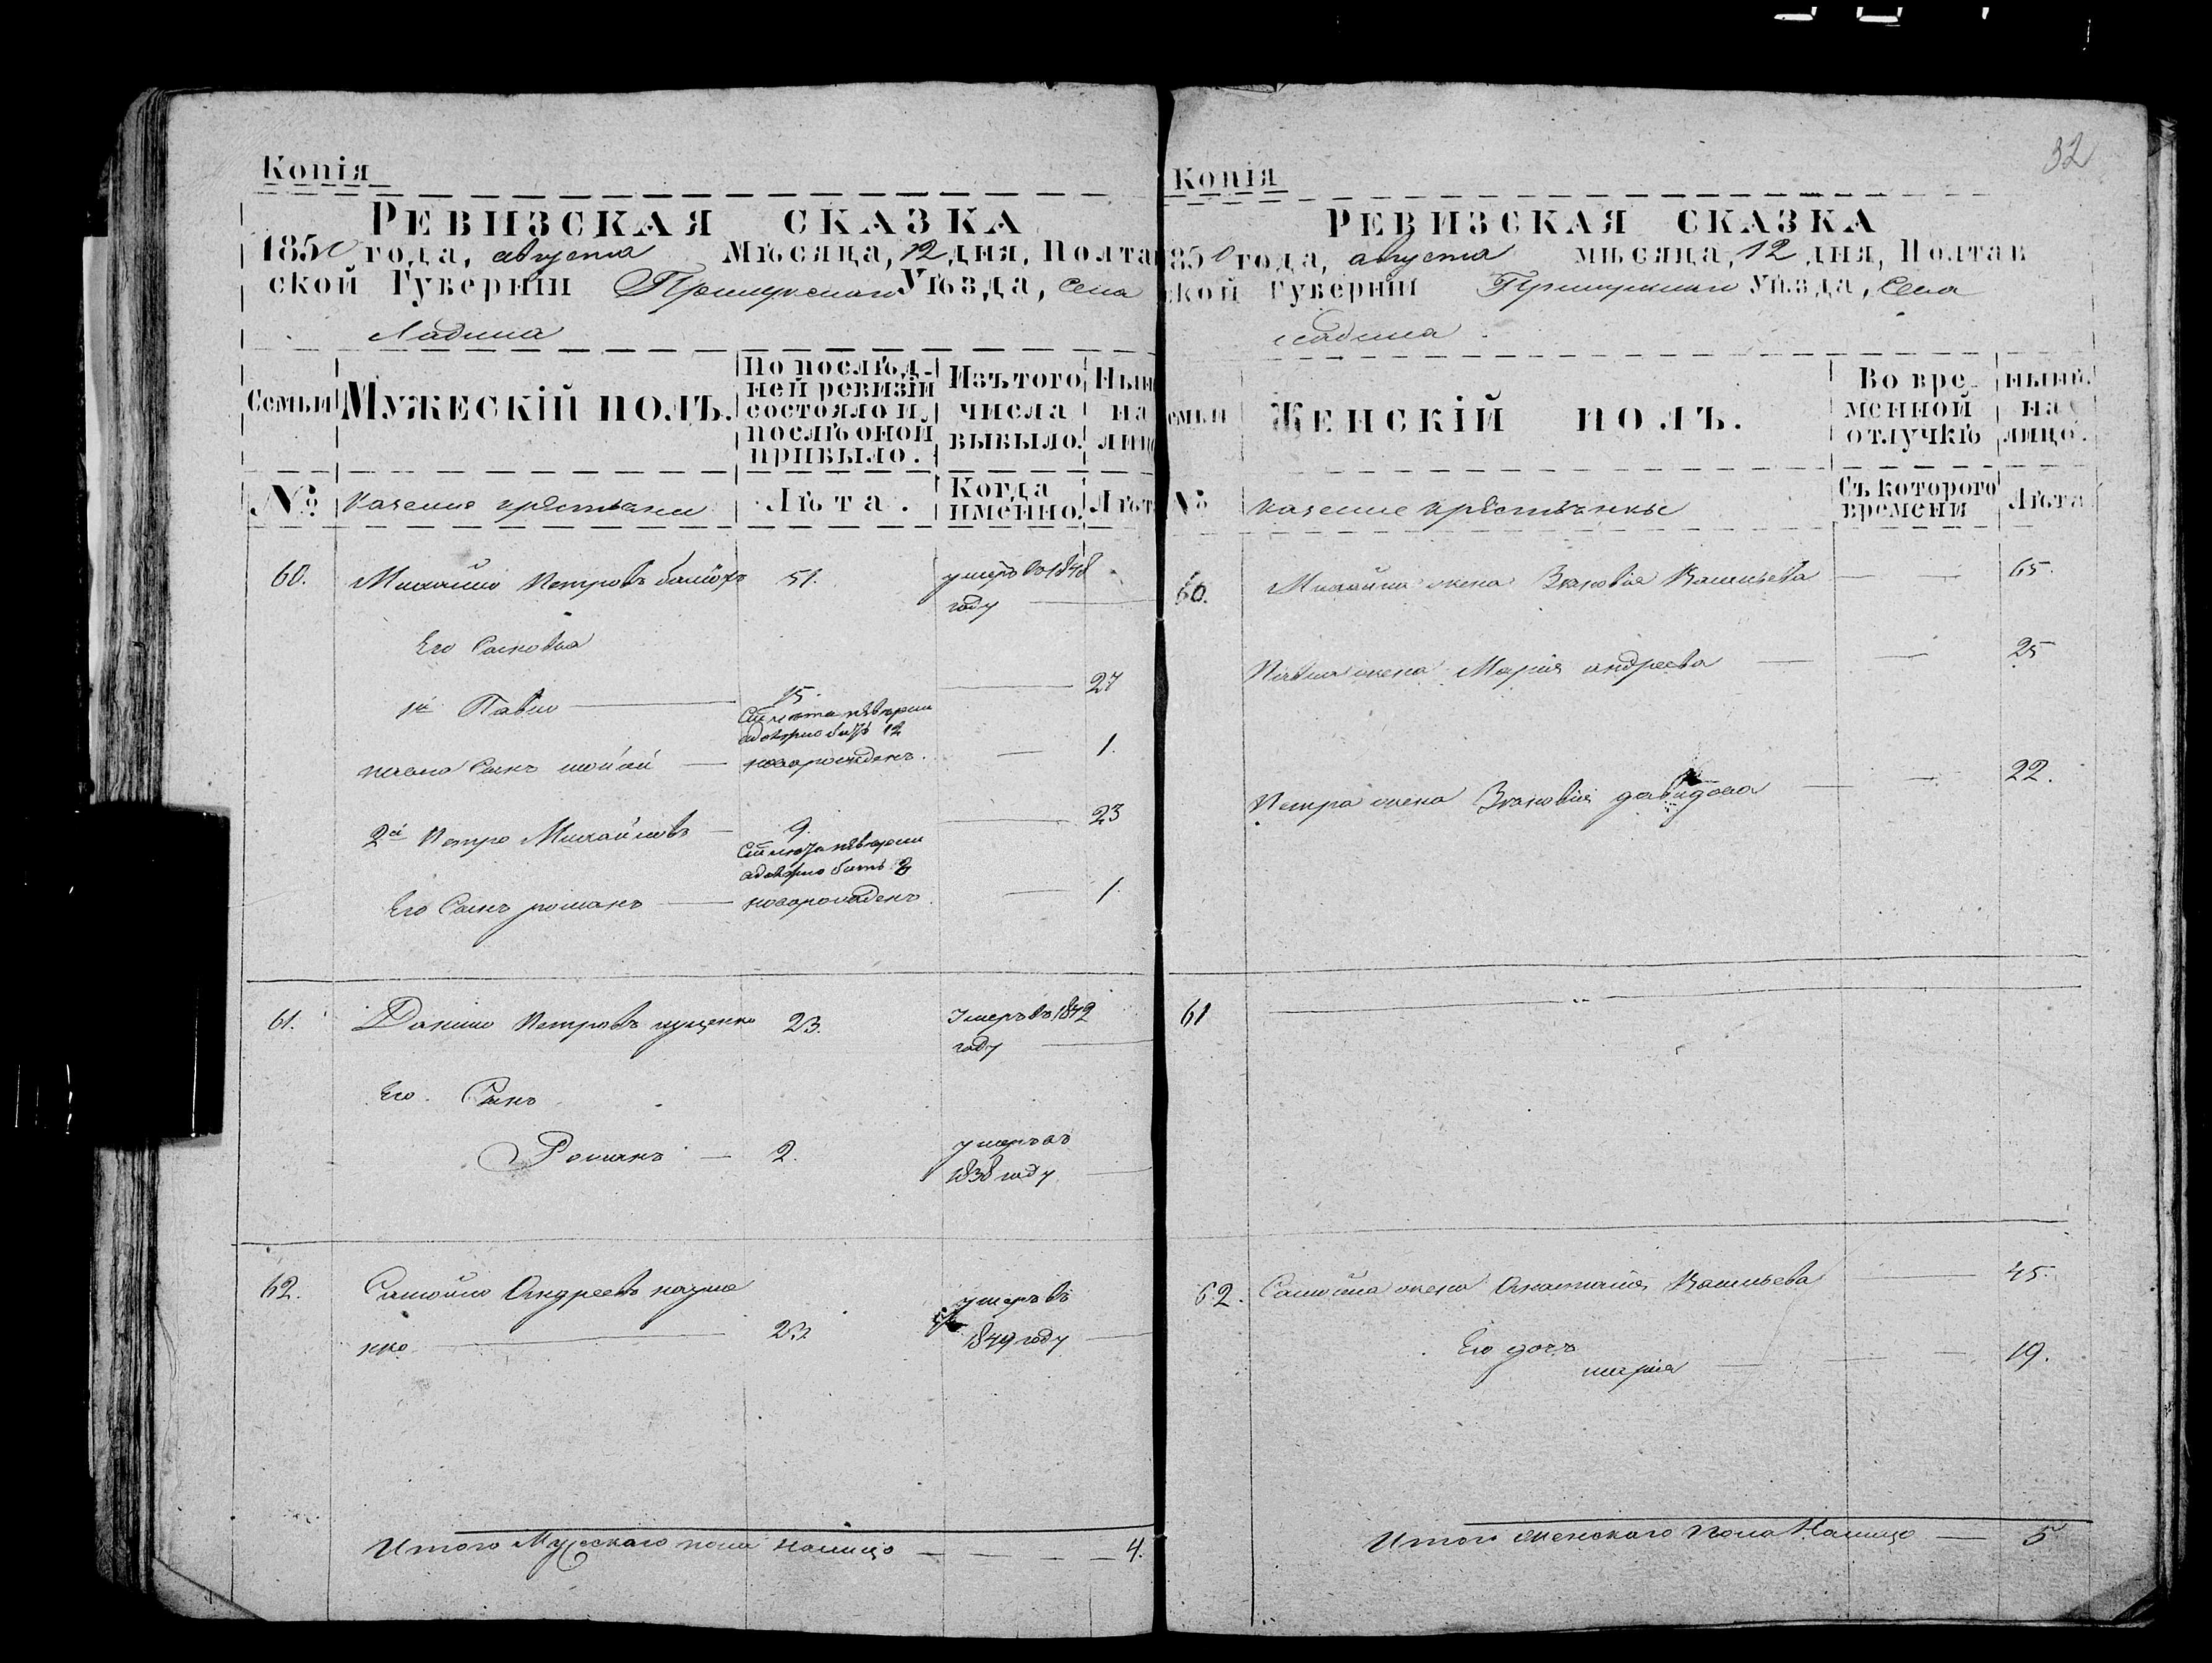 32
Копія
РЕВИЗСКАЯ СКАЗКА
1850 года, августа Мѣсяца, 12 дня, Полта
ской Губерніи Прилукского Уѣзда, Села
Ладина
Семьи
МУЖЕСКІЙ ПОЛЪ.
По послѣд-
ней ревизіи
состояло и
послѣ оной
прибыло.
Изъ того
числа
выбыло.
Нын
на
лиц
№
казенные крестьяне
Лѣта.
Когда
именно.
Лѣт
60. Михайло Петровъ 51. умеръ въ 1848
году
Его Сыновья
1й Павло 15. 27
новорожденъ. 1.
2й Петро Михайловъ 9. 23
Его Сынъ романъ новорожденъ. 1.
61. Данило Петровъ куценко 23. Умеръ въ 1842
году
Его Сынъ
Романъ 2. умеръ въ
1838 году
62. Самойло Андреевъ науме
нко 23 умеръ въ
1849 году
Итого Мужескаго пола налицо 4.
Копія
РЕВИЗСКАЯ СКАЗКА
850 года, августа мѣсяца, 12 дня, Полтав
ской Губерніи Прилукского Уѣзда, Села
Ладина
емьи
ЖЕНСКІЙ ПОЛЪ.
Во вре-
менной
отлучкѣ
нынѣ.
на
лицо.
№
казенные крестьянки
Съ котораго
времени
Лѣта
60. Михайла жена Зиновія Васильева 65.
Павла жена Марія андреева 25
Петра жена Зиновія давидова 22.
61
62. Самойла жена Анастасія Васильева 45.
Его дочь
марія 19.
Итого женскаго пола Налицо 5